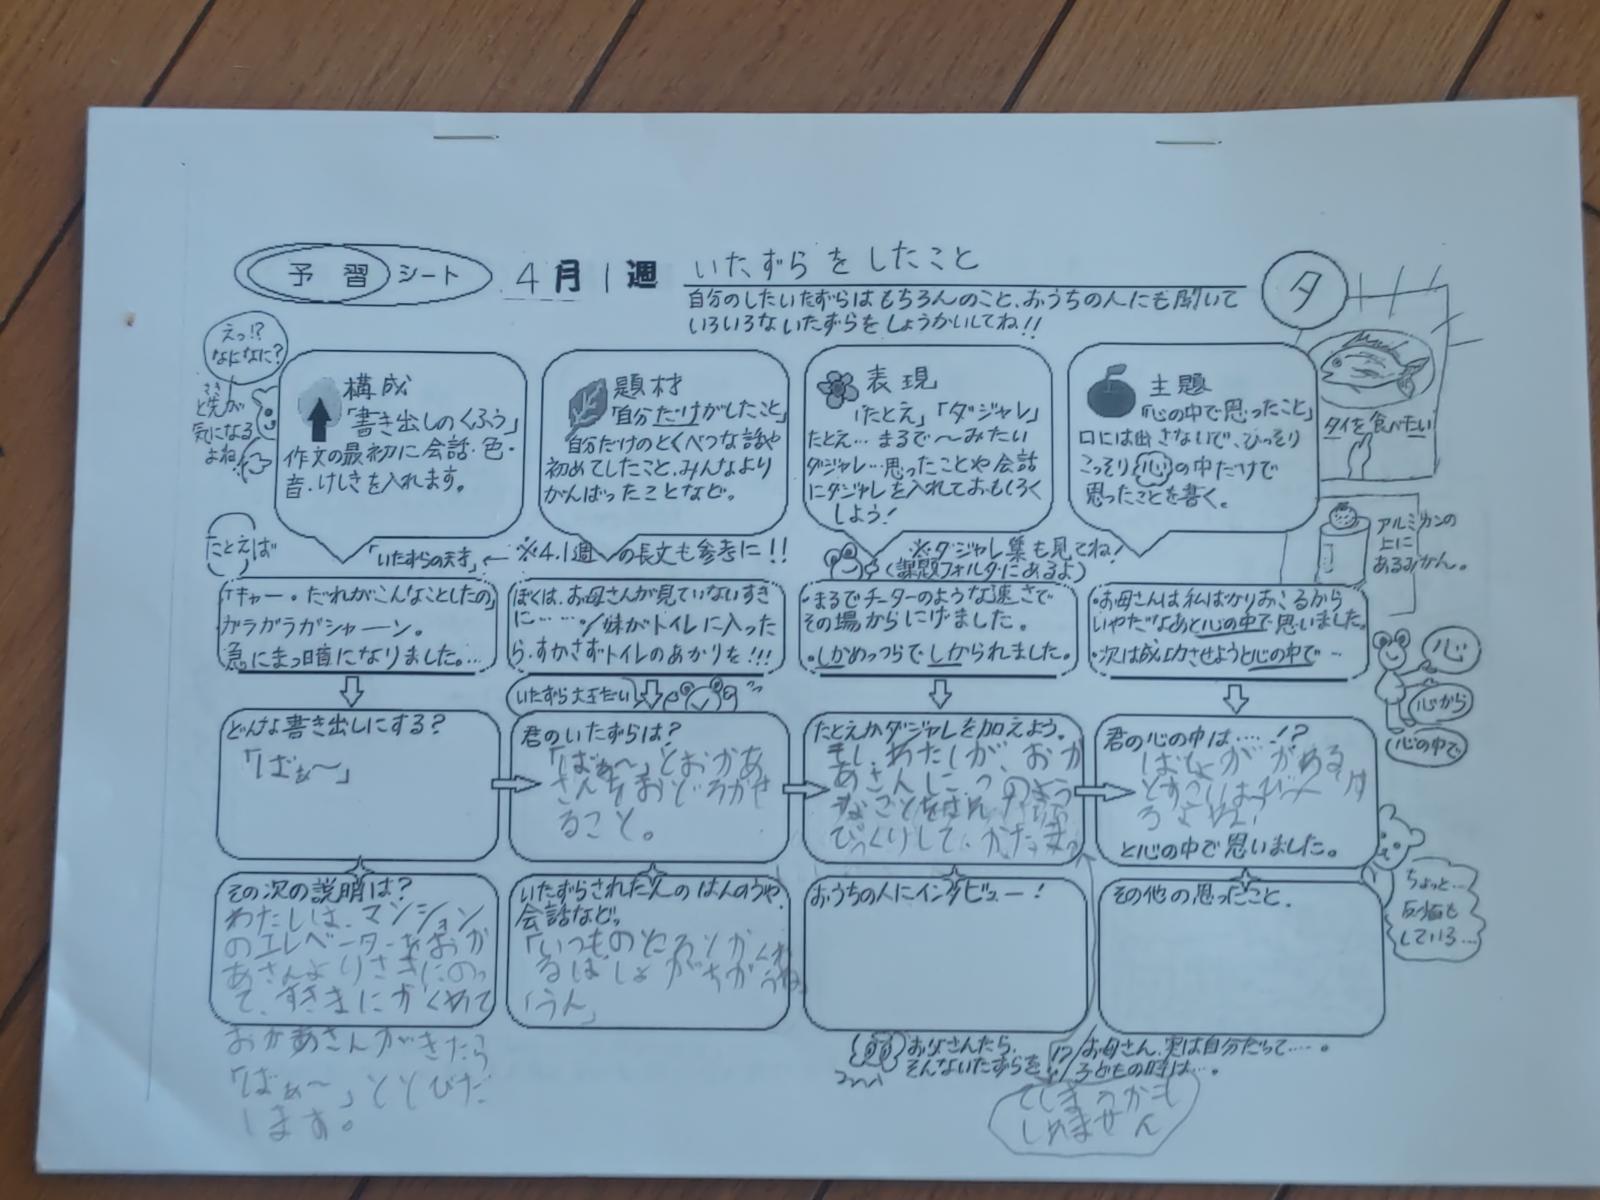 予習シート 4月1週 いたずらをしたこと
自分のしたいたずらはもちろんのこと、おうちの人にも聞いて
いろいろないたずらをしょうかいしてね!!
夕
えっ!?
なになに?
さき
と先が
気になる
よね
構成
「書き出しのくふう」
作文の最初に会話・色・
音・けしきを入れます。
題材
「自分だけがしたこと」
自分だけのとくべつな話や
初めてしたこと、みんなより
がんばったことなど。
表現
「たとえ」「ダジャレ」
たとえ…まるで〜みたい
ダジャレ…思ったことや会話
にダジャレを入れておもしろく
しよう!
主題
「心の中で思ったこと」
口には出さないで、ひっそり
こっそり心の中だけで
思ったことを書く。
タイを食べたい
アルミカンの
上に
あるみかん。
たとえば
「いたずらの天才」← ※4.1週の長文も参考に!!
※ダジャレ集も見てね!
(課題フォルダにあるよ)
「キャー。だれがこんなことしたの」
ガラガラガシャーン。
急にまっ暗になりました。…
ぼくは、お母さんが見ていないすき
に……。/妹がトイレに入った
ら、すかさずトイレのあかりを!!!
・まるでチーターのような速さで
その場からにげました。
・しかめっつらでしかられました。
・お母さんは私ばかりおこるから
いやだなあと心の中で思いました。
・次は成功させようと心の中で…
心
心から
心の中で
いたずら大王だい
どんな書き出しにする?
「ばぁ〜」
君のいたずらは?
「ばぁ〜」とおかあ
さんをおどろかせ
ること。
たとえかダジャレを加えよう。
もし、わたしが、おか
あさんに
なことをされ
びっくりして、かたまっ
君の心の中は……!?
と心の中で思いました。
その次の説明は?
わたしは、マンション
のエレベーターをおか
あさんよりさきにのっ
て、すきまにかくれて
おかあさんがきたら
「ばぁ〜」ととびだ
します。
いたずらされた人のはんのうや、
会話など。
「いつものところとかくれ
るばしょがちがうね。」
「うん」
おうちの人にインタビュー!
その他の思ったこと。
ちょっと…
反省も
している…
お父さんたら、
そんないたずらを!?
お母さん、実は自分だって……。
子どもの時は…。
てしまうかも
しれません